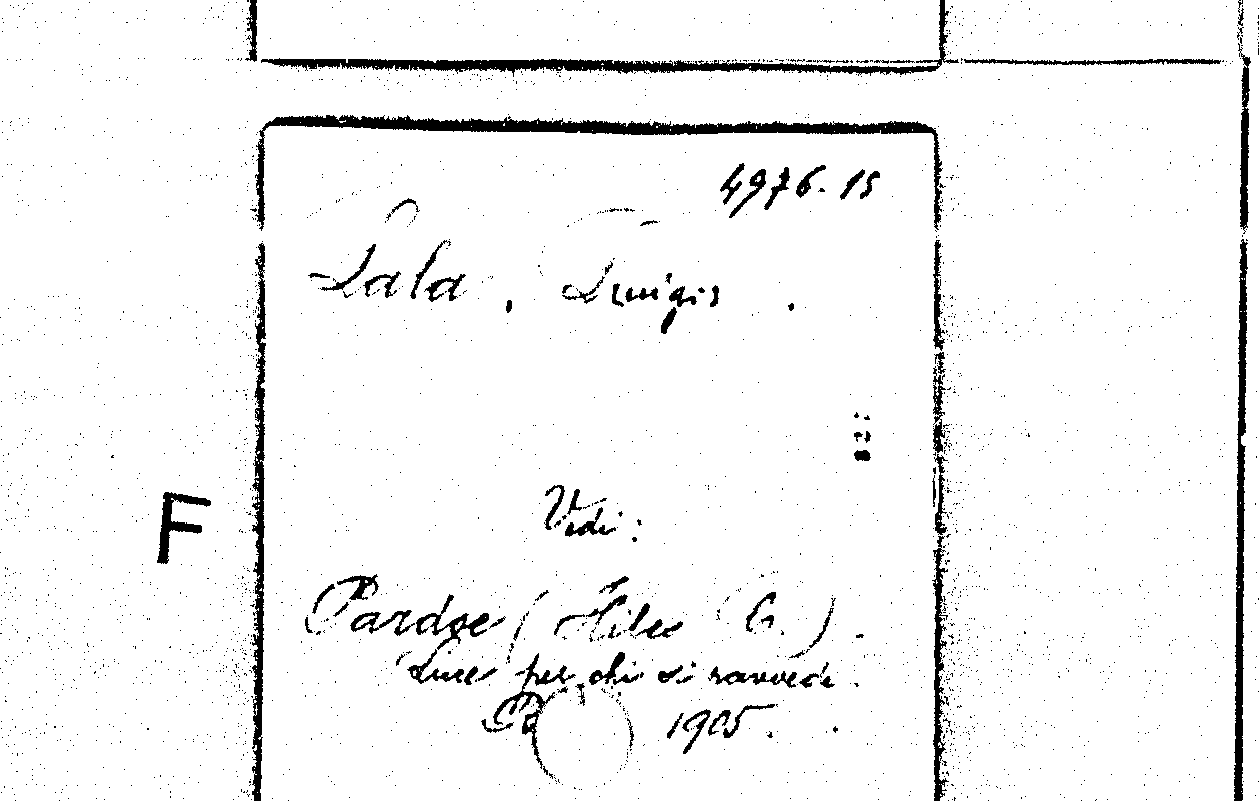 4976.15
Lala, Luigi.
F
Vedi:
Pardoe (Hilec G.).
Luce per chi si ravvede.
1905.